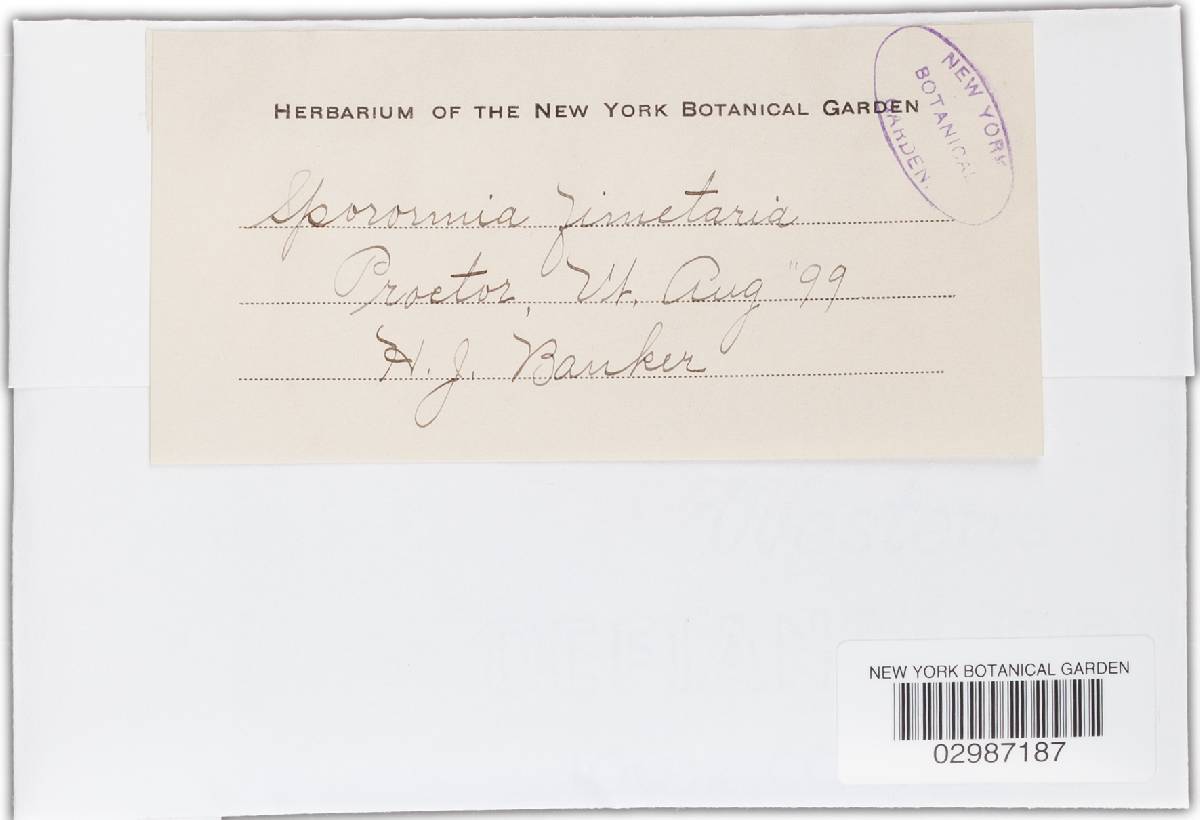 HERBARIUM OF THE NEW YORK BOTANICAL GARDEN
NEW YORK
BOTANICAL
GARDEN.
Sporormia fimetaria
Proctor, Vt. Aug "99
H. J. Banker
NEW YORK BOTANICAL GARDEN
02987187